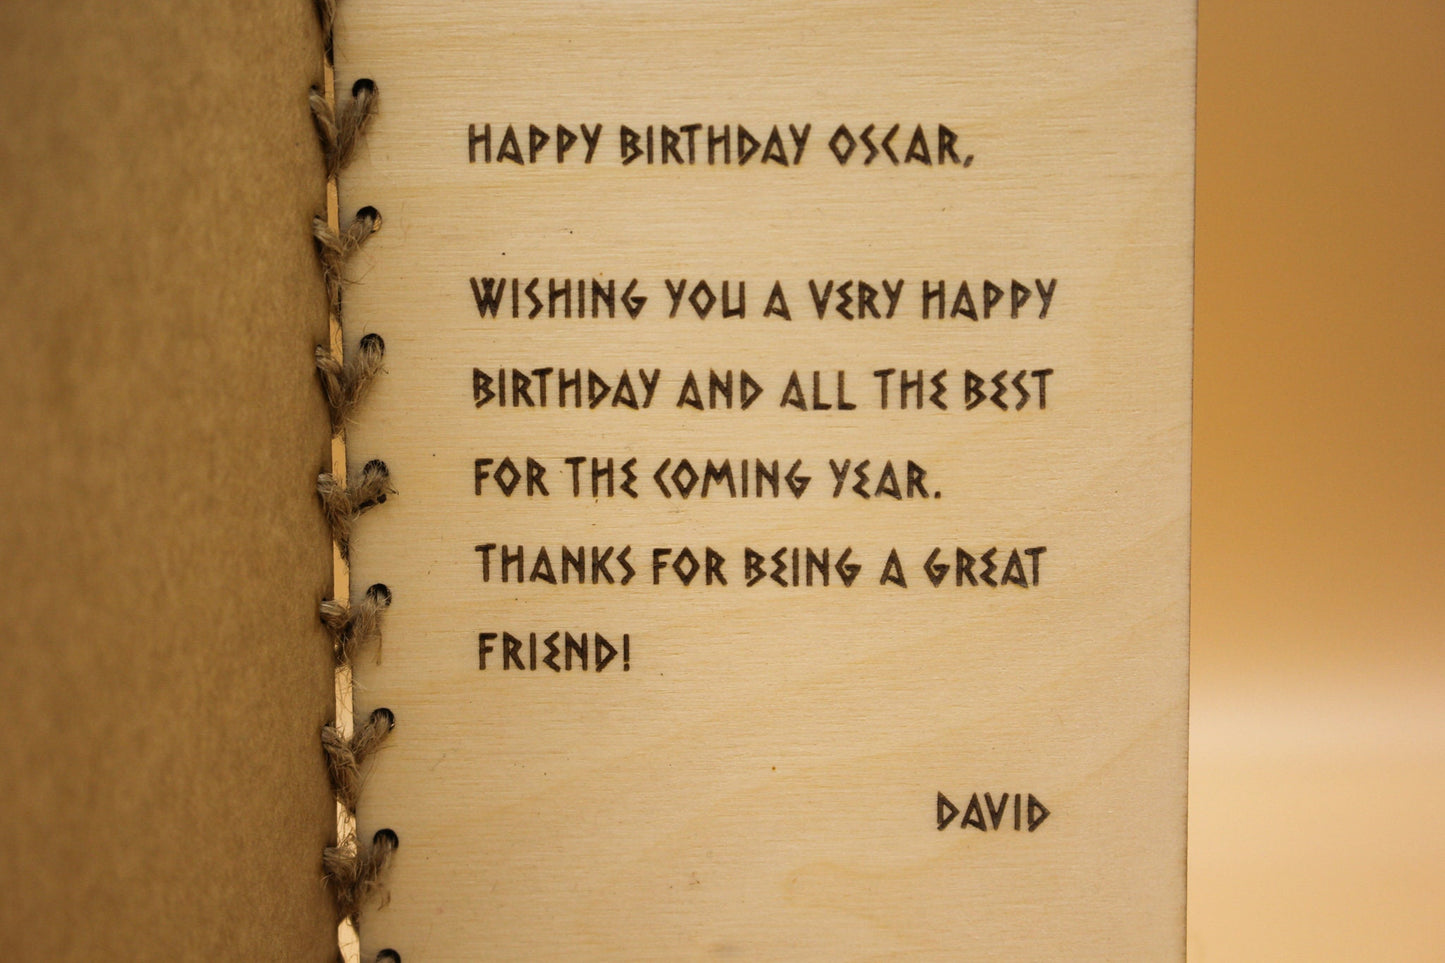 HAPPY BIRTHDAY OSCAR,
WISHING YOU A VERY HAPPY
BIRTHDAY AND ALL THE BEST
FOR THE COMING YEAR.
THANKS FOR BEING A GREAT
FRIEND!
DAVID